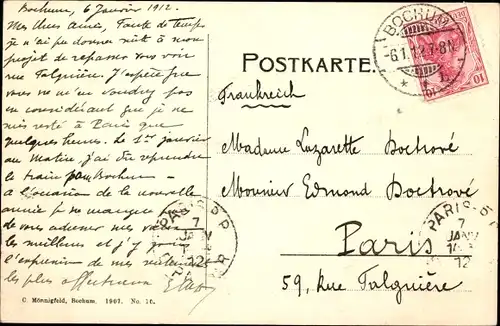 Bochum, 6 Janvier 1912.
Mes chers amis, Faute de temps,
je n'ai pu donner suite à mon
projet de repasser vous voir
rue Falguière. J'espère que
vous ne m'en voudrez pas
en considérant que je ne
suis resté à Paris que
quelques heures. Le 1er janvier
au matin, j'ai dû reprendre
le train pour Bochum
à l'occasion de la nouvelle
année je ne manque
de mes vœux
les meilleurs et j'y joins
l'expression de mes sentiments
les plus affectueux
C. Mönnigfeld, Bochum. 1907. No. 16.
POSTKARTE.
BOCHUM
-6.1.12.7-8N.
10
10
Frankreich
Madame Lazarette Boctrové
Monsieur Edmond Boctrové
Paris
59, Rue Falguière
PARIS
7
JANV
12
PARIS
7
JANV
12